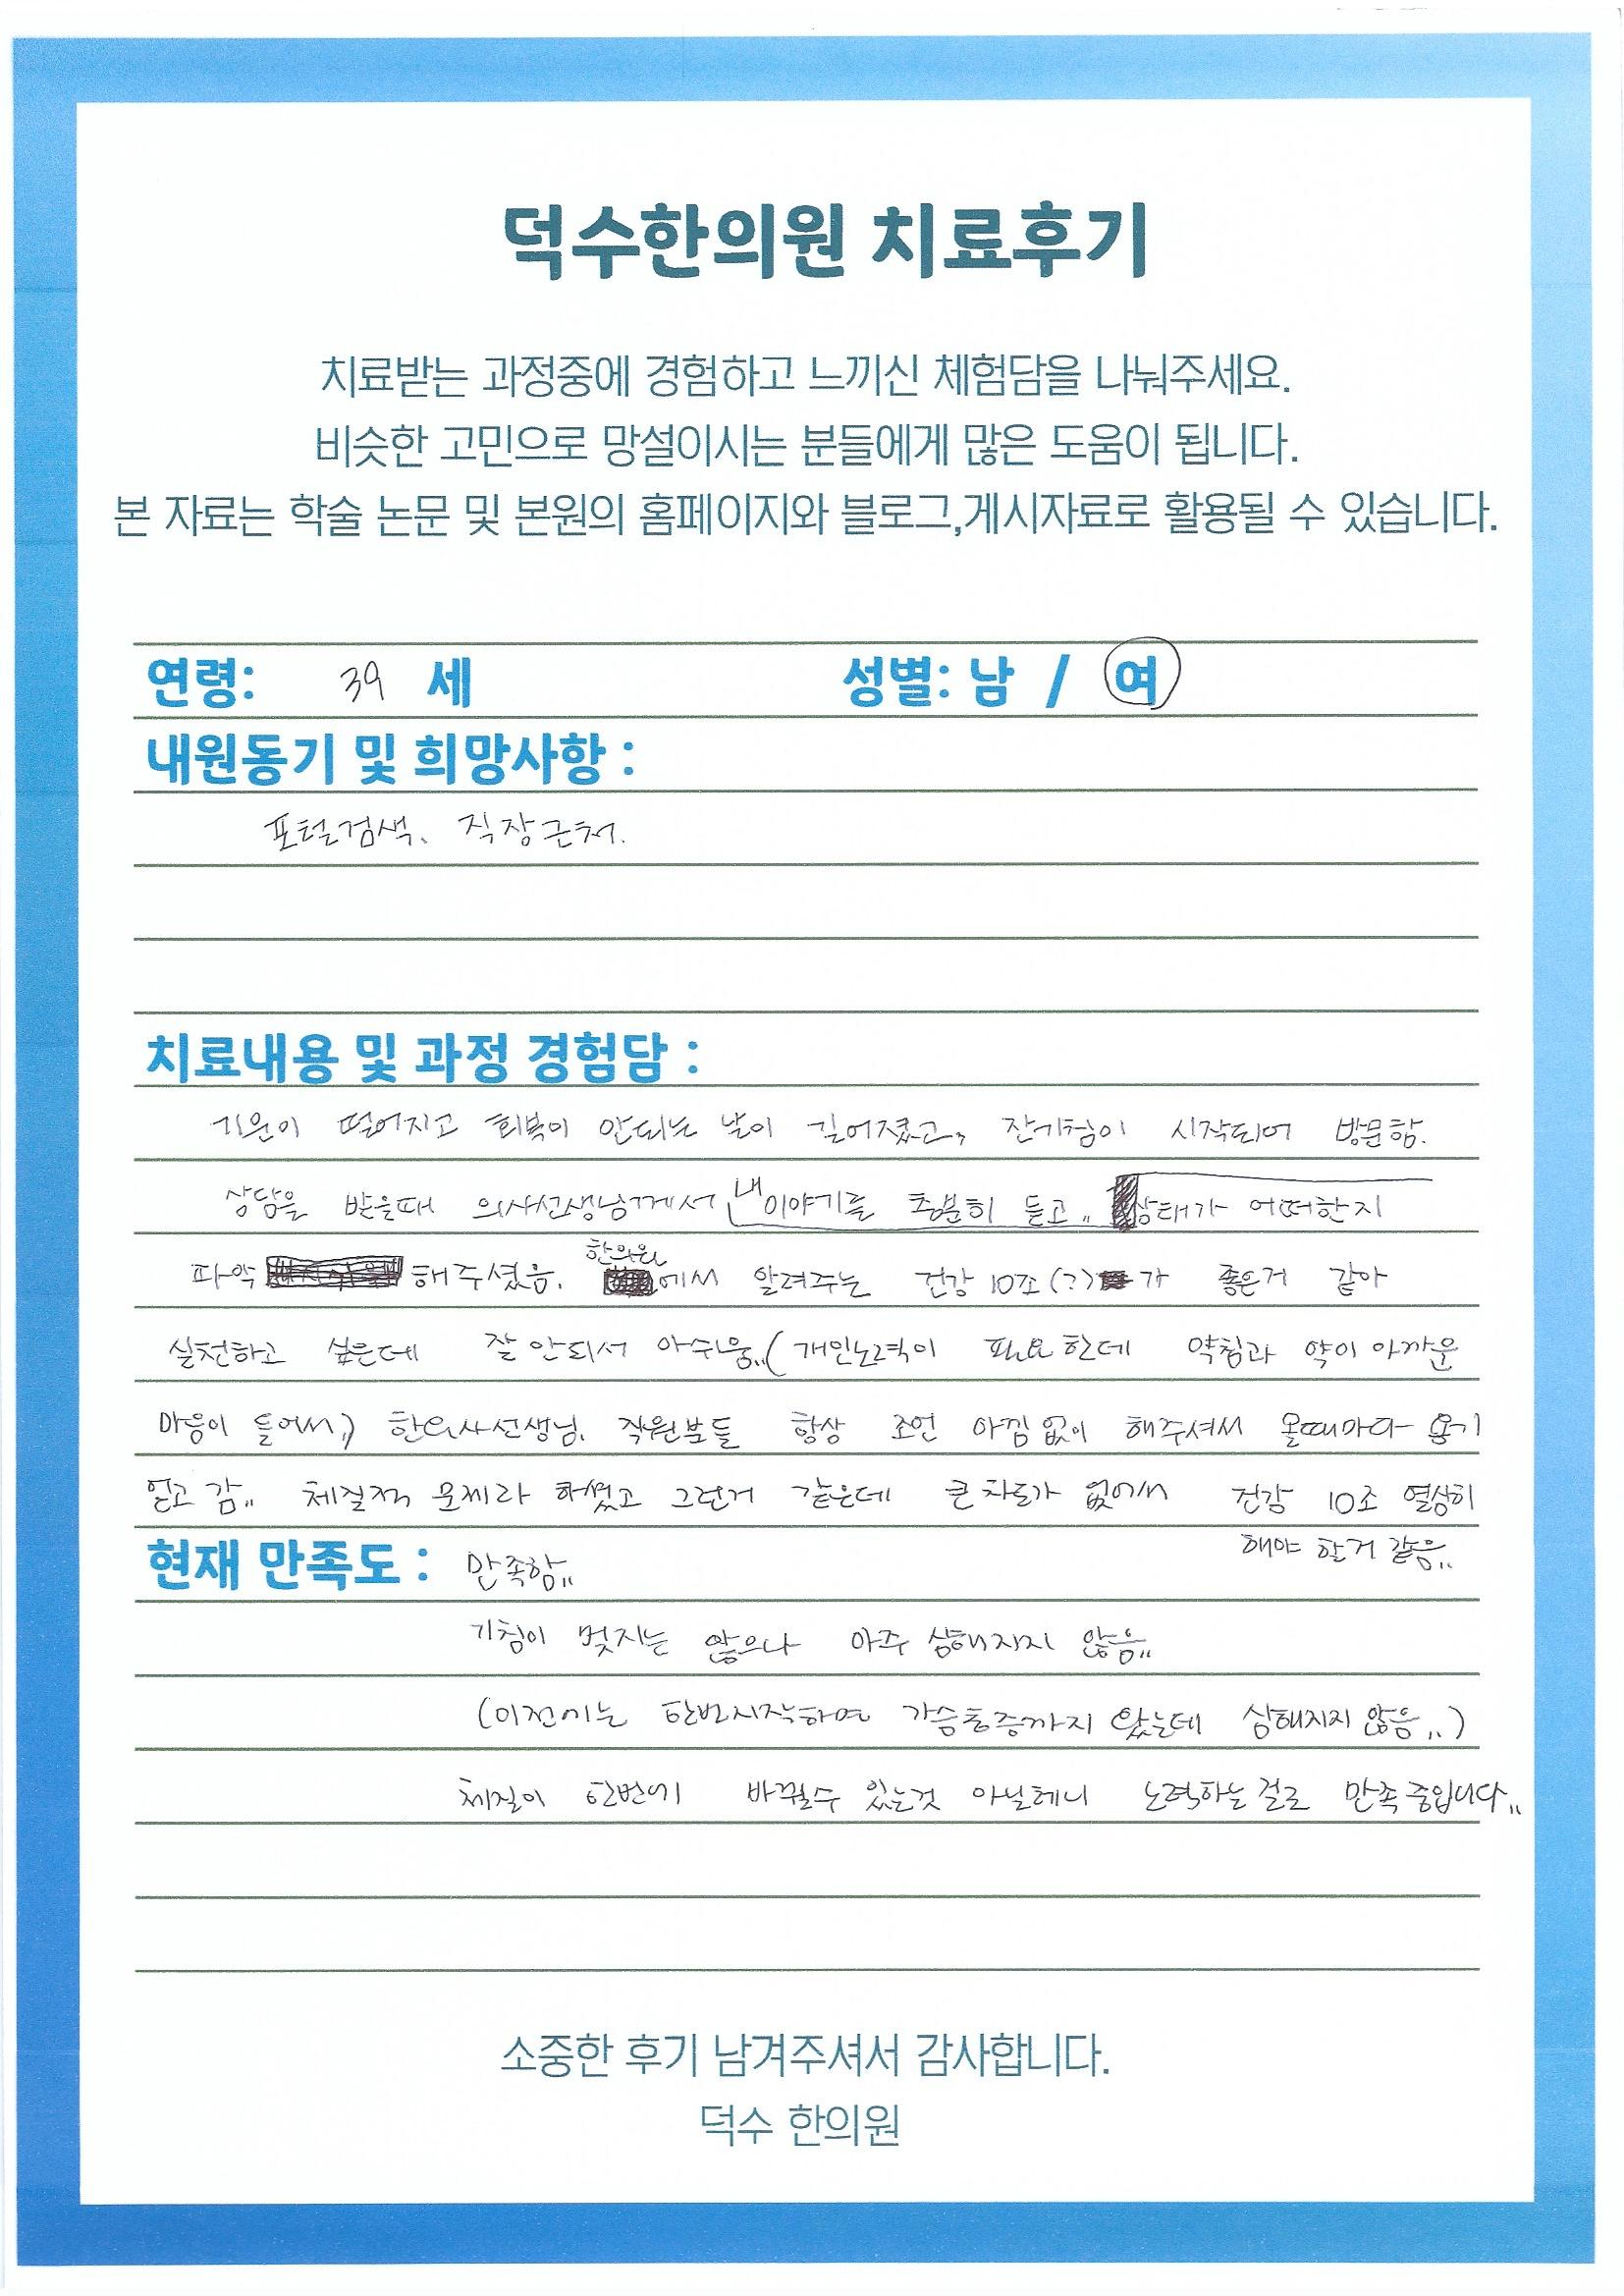 덕수한의원 치료후기
치료받는 과정중에 경험하고 느끼신 체험담을 나눠주세요.
비슷한 고민으로 망설이시는 분들에게 많은 도움이 됩니다.
본 자료는 학술 논문 및 본원의 홈페이지와 블로그,게시자료로 활용될 수 있습니다.
연령: 39 세 성별: 남 / 여
내원동기 및 희망사항 :
포털검색, 직장근처.
치료내용 및 과정 경험담 :
기운이 떨어지고 회복이 안되는 날이 길어졌고, 잔기침이 시작되어 방문함.
상담을 받을때 의사선생님께서 내 이야기를 충분히 듣고,, 상태가 어떠한지
파악 해주셨음. 한의원에서 알려주는 건강 10조(?)가 좋은거 같아
실천하고 싶은데 잘 안되서 아쉬움,,(개인노력이 필요한데 약침과 약이 아까운
마음이 들어서,) 한의사선생님, 직원분들 항상 조언 아낌없이 해주셔서 올때마다 용기
얻고 감,, 체질적 문제라 하셨고 그런거 같은데 큰 차도가 없어서 건강 10조 열심히
해야 할거 같음,,
현재 만족도 : 만족함,,
기침이 멎지는 않으나 아주 심해지지 않음,,
(이전에는 한번시작하여 가슴통증까지 왔는데 심해지지 않음,,)
체질이 한번에 바뀔수 있는것 아닐테니 노력하는걸로 만족중입니다,,
소중한 후기 남겨주셔서 감사합니다.
덕수 한의원